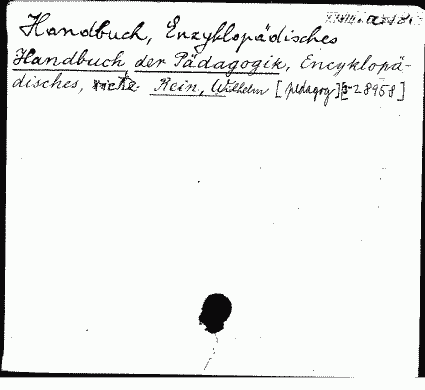 Handbuch, Enzyklopädisches
Handbuch der Pädagogik, Encyklopä-
disches, siehe Rein, Wilhelm [pedagog]